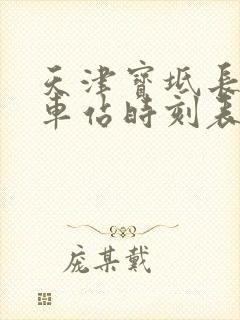 天津寶坻長
車佔時刻表
庞某戴